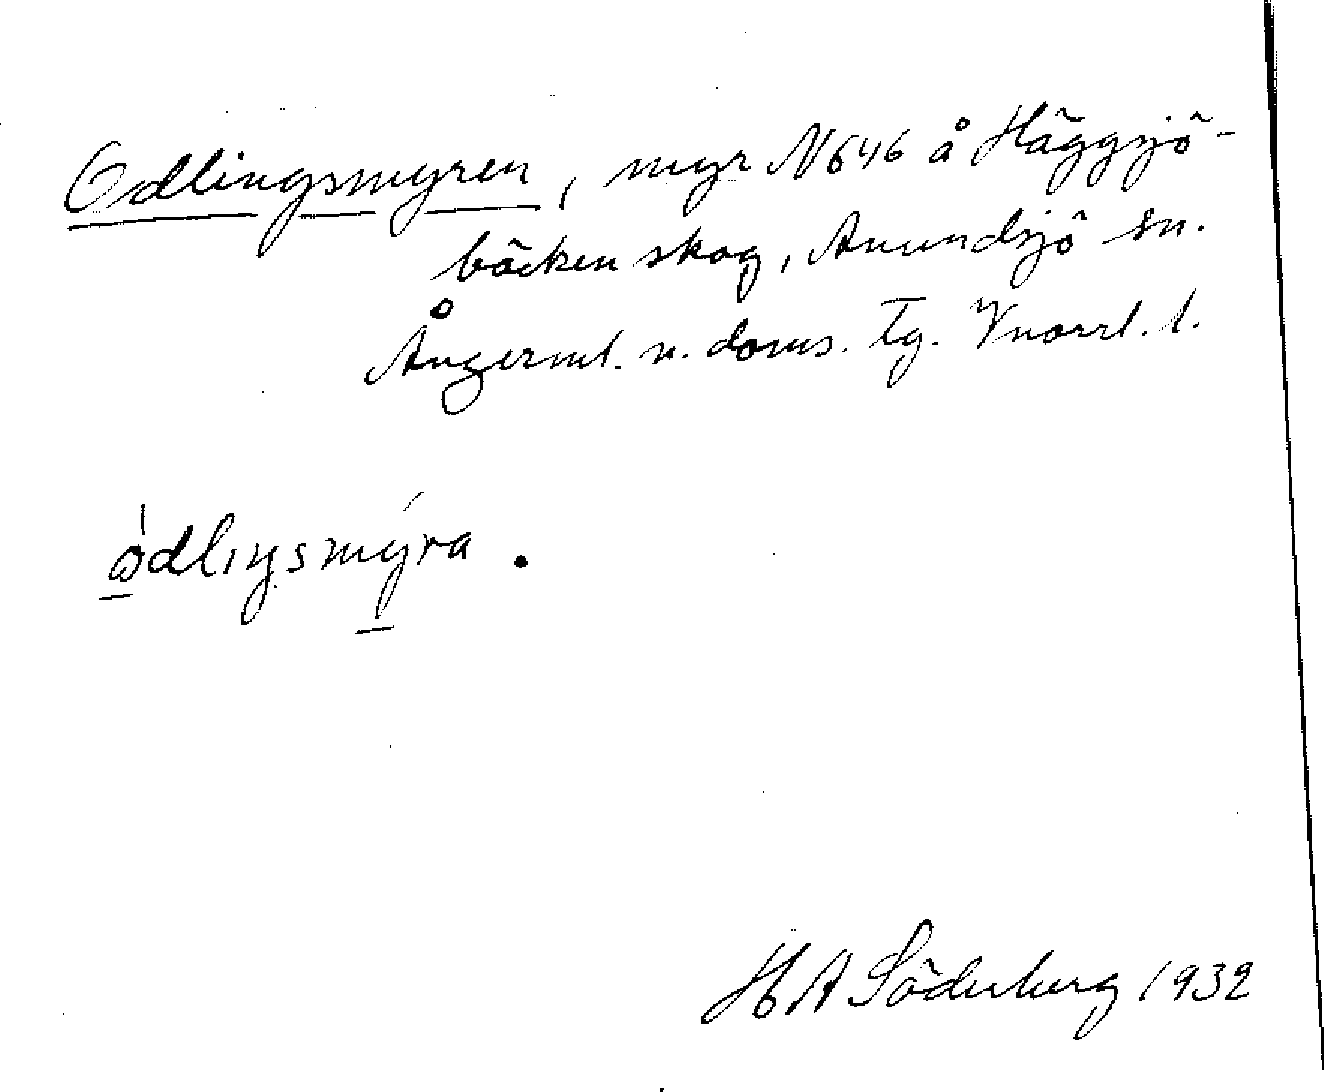 Odlingsmyren, myr N646 å Häggsjö-
bäcken skog, Anundsjö sn.
Ångerml. n. doms. Tg. Vnorrl. l.
ödlıŋsmýra.
H A Söderberg 1932